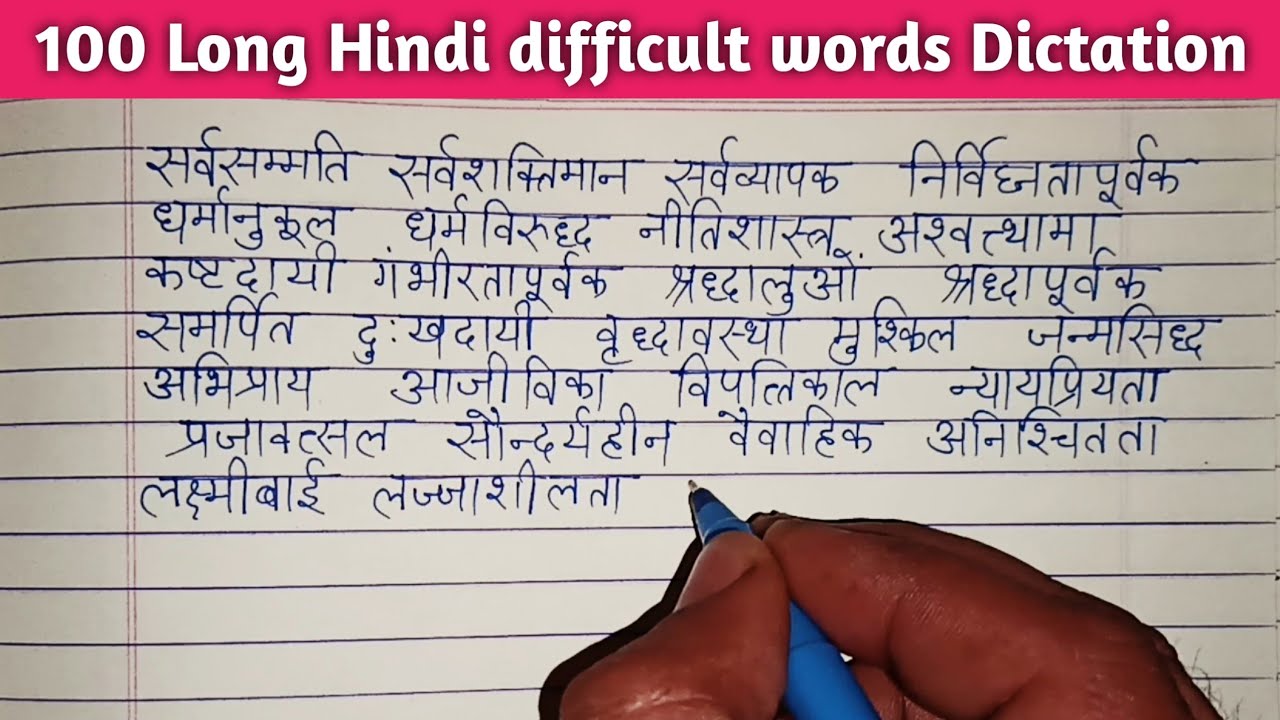 100 Long Hindi difficult words Dictation
सर्वसम्मति सर्वशक्तिमान सर्वव्यापक निर्विघ्नतापूर्वक
धर्मानुकूल धर्मविरुध्द नीतिशास्त्र अश्वत्थामा
कष्टदायी गंभीरतापूर्वक श्रध्दालुओं श्रध्दापूर्वक
समर्पित दुःखदायी वृध्दावस्था मुश्किल जन्मसिध्द
अभिप्राय आजीविका विपत्तिकाल न्यायप्रियता
प्रजावत्सल सौन्दर्यहीन वैवाहिक अनिश्चितता
लक्ष्मीबाई लज्जाशीलता